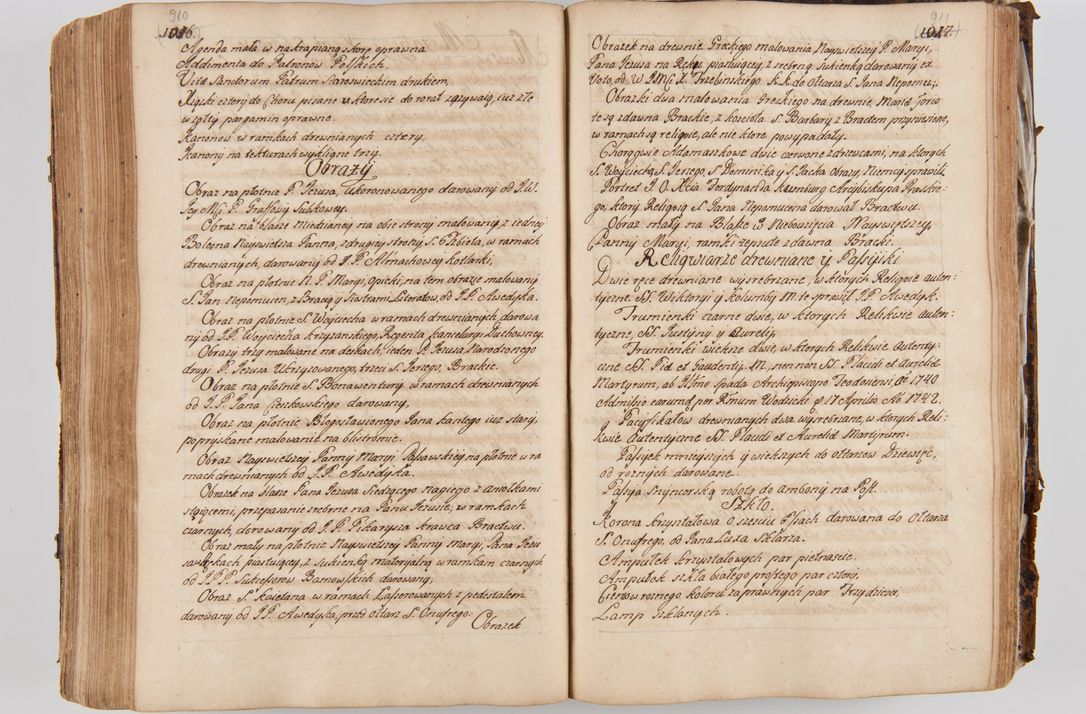 910
1016.
Agenda mała w nakrapianą skórę oprawna
Addimenta do Patronow Polskich.
Vita Sanctorum Patrum Staroswieckim drukiem
Xiąszki cztery do Choru pisane w ktore sie do rorat zazywaią, iuz złe
w zołty pargamin oprawne.
Kanonow w ramkach drewnianych cztery.
Kanony na tekturach wyklijone trzy.
Obrazy
Obraz na płotnie P. Jezusa, Ukoronowanego darowany od J.W.
Jey Mci P. Grafowy Sułkowey.
Obraz na blasze Miedzianey na obie strony malowany, z iedney
Bolesna Nayswietsza Panna, z drugiey strony S. Elzbieta, w ramach
drewnianych, darowany od J. P. Almachowey kotlarki,
Obraz na płotnie N. P. Maryi, Opieki, na tem obrazie malowany
S. Jan Nepomucen, z Bracią y Siostrami Literatow, od J.P. Awedyka.
Obraz na płotnie S. Woyciecha w ramach drewnianych, darowa
ny od J. P. Woyciecha Krzyżanskiego, Regenta kancelaryi Duchowney.
Obrazy trzy malowane na deskach, ieden P. Jezusa, Narodzonego
drugi P. Jezusa Ukrzyzowanego, trzeci S. Jerzego, Brackie.
Obraz na płotnie S. Bonawentury w ramach drewnianych
od J. P. Jana Cienkowskiego darowany,
Obraz na płotnie Błogosławionego Jana kantego iuz stary,
popryskane malowanie na blistromie.
Obraz Nayswietszey Panny Maryi Passawskiey na płotnie w ra
mach drewnianych od J. P. Awedyka.
Obrazek na Słanie Pana Jezusa Siedzącego nagiego z aniołkami
stoiącemi, przepasanie srebrne na Panu Jezusie, w ramkach
czarnych, darowany od J. P. Pikarysza krawca Bractwu.
Obraz mały na płotnie Nayswietszey Panny Maryi, Pana Jezu
sa na rękach piastuiącey, z Sukienką materyalną w ramkach czarnych
od J.P.P. Sukcessorow Bamowskich darowany,
Obraz S. kaietana w ramach Lasserowanych z pedestałem
darowany od J. P. Awedyka, przed ołtarz S. Onufrego.
Obrazek
911
1017.
Obrazek na drewnie Greckiego malowania Nayswietszey P. Maryi,
Pana Jezusa na Ręku piastuiącey, z srebrną Sukienką darowany ex
Voto, od W. JMci X. Trzebinskiego K.K. do Ołtarza S. Jana Nepomu:
Obrazki dwa malowania Greckiego na drewnie, Mania Jorw
te są zdawna Brackie, z kosciola S. Barbary z Bractem przyniesione,
w ramach są religwie, ale nie ktore powypadały.
Chorągwie Adamaszkowe dwie czerwone z drzewcami, na ktorych
S. Woyciecha, S. Jerzego, S. Dominika y S. Jacka obrazy, Niemcy sprawili,
Portret J. O. Xcia Ferdynarda Kumburg Arcybiskupa Praskie-
go, ktory Religwią S. Jana Nepomucena darował Bractwu.
Obraz mały na Blasze Wniebowzięcia Nayswietszey,
Panny Maryi, ramki zepsute zdawna Bracki.
Religwiarze drewniane y Passyiki
Dwie ręce drewniane wysrebrzane, w ktorych Religwie auten:
tyczne SS. Wiktoryi y Kolumby M. te sprawił J.P. Awedyk.
Trumienki czarne dwie, w ktorych Relikwie auten:
tyczne, SS. Justyny y Aurelii,
Trumienki większe dwie, w ktorych Relikwie Autenty:
czne SS. Fid. et Gaudenty M. nec non SS. Placidi et Aurelii
Martyrum, ab Illmo Spada Archiepiscopo Teodosiensi, Ao 1740
Admissio earumd. per Rmum Wodzicki d. 17 Aprilis Ao 1742.
Pacyfikałow drewnianych dwa wysrebrzane, w ktorych Reli:
kwie Autentyczne SS. Plauti et Aurelii Martyrum.
Passyiek mnieyszych y większych do ołtarzow Dziewięć,
od roznych darowane.
Passyia Snycerską robotą do ambony na Post.
Szkło.
Korona krzyształowa o szesciu Essach darowana do Ołtarza
S. Onufrego, od Pana Luxa Szklarza.
Ampułek krzyształowych par pietnascie.
Ampułek szkła białego prostego par cztery,
Cierzow roznego koloru zaprawnych par Trzydziesci,
Lamp szklanych.